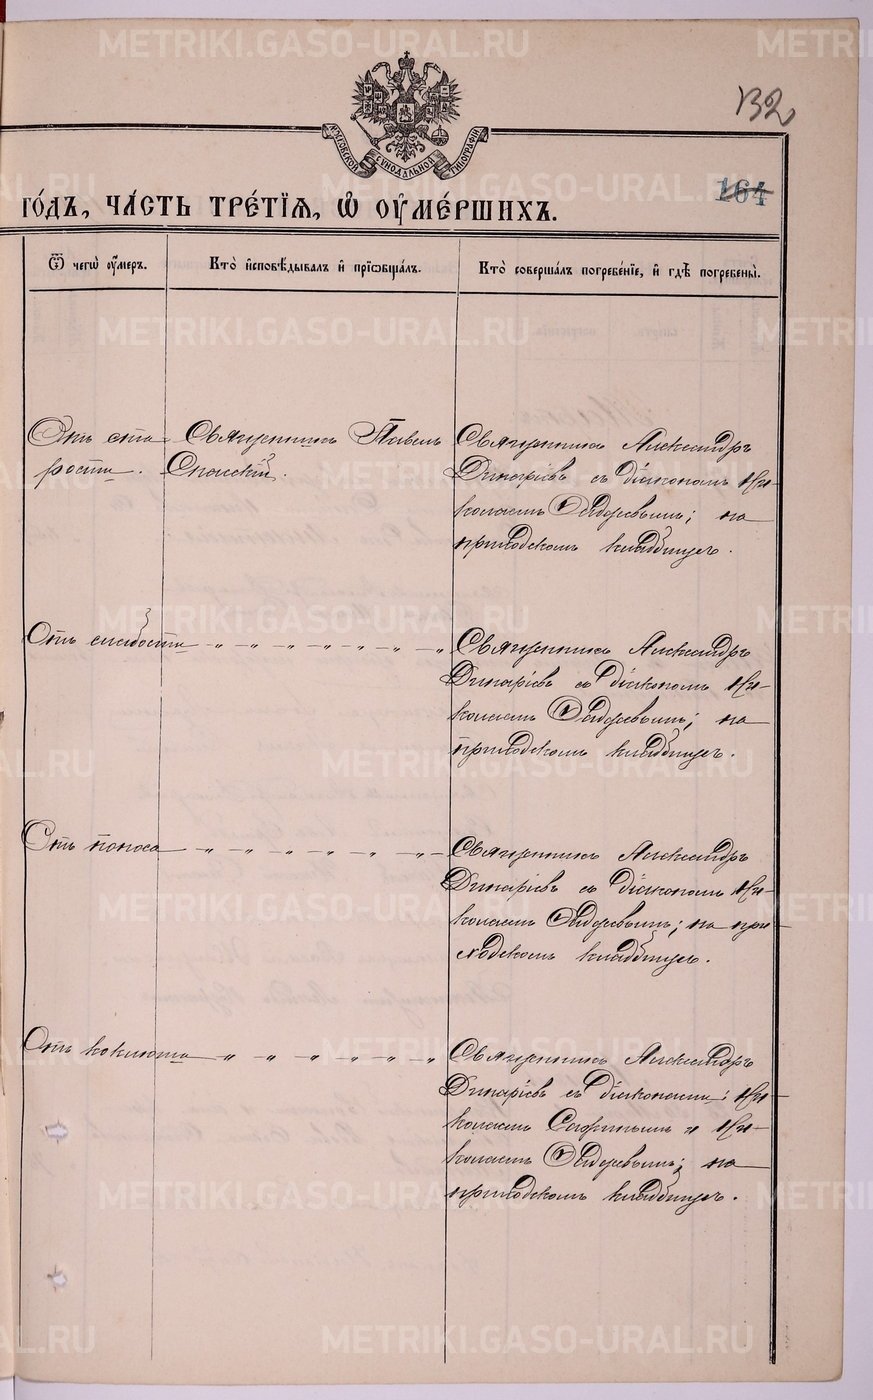 132
164
МОСКОВСКОЙ СѴНОДАЛЬНОЙ ТИПОГРАФІИ
ГО́ДЪ, ЧА́СТЬ ТРЕ́ТІѦ, Ѡ҆ ОУ҆МЕ́РШИХЪ.
Ѿ чегѡ̀ оу҆́меръ.
Кто̀ и҆сповѣ́дывалъ и҆ прїѡбща́лъ.
Кто̀ соверша́лъ погребе́нїе, и҆ гдѣ̀ погребены̀.
Отъ ста-
рости.
Священникъ Павелъ
Спасскій.
Священникъ Александръ
Динаріевъ съ діакономъ Ни-
колаемъ
на
приходскомъ кладбищѣ.
Отъ слабости
Священникъ Александръ
Динаріевъ съ діакономъ Ни-
колаемъ
на
приходскомъ кладбищѣ.
Отъ поноса
Священникъ Александръ
Динаріевъ съ діакономъ Ни-
колаемъ
на при-
ходскомъ кладбищѣ.
Отъ коклюша
Священникъ Александръ
Динаріевъ съ діаконами: Ни-
колаемъ
и Ни-
колаемъ
на
приходскомъ кладбищѣ.
METRIKI.GASO-URAL.RU